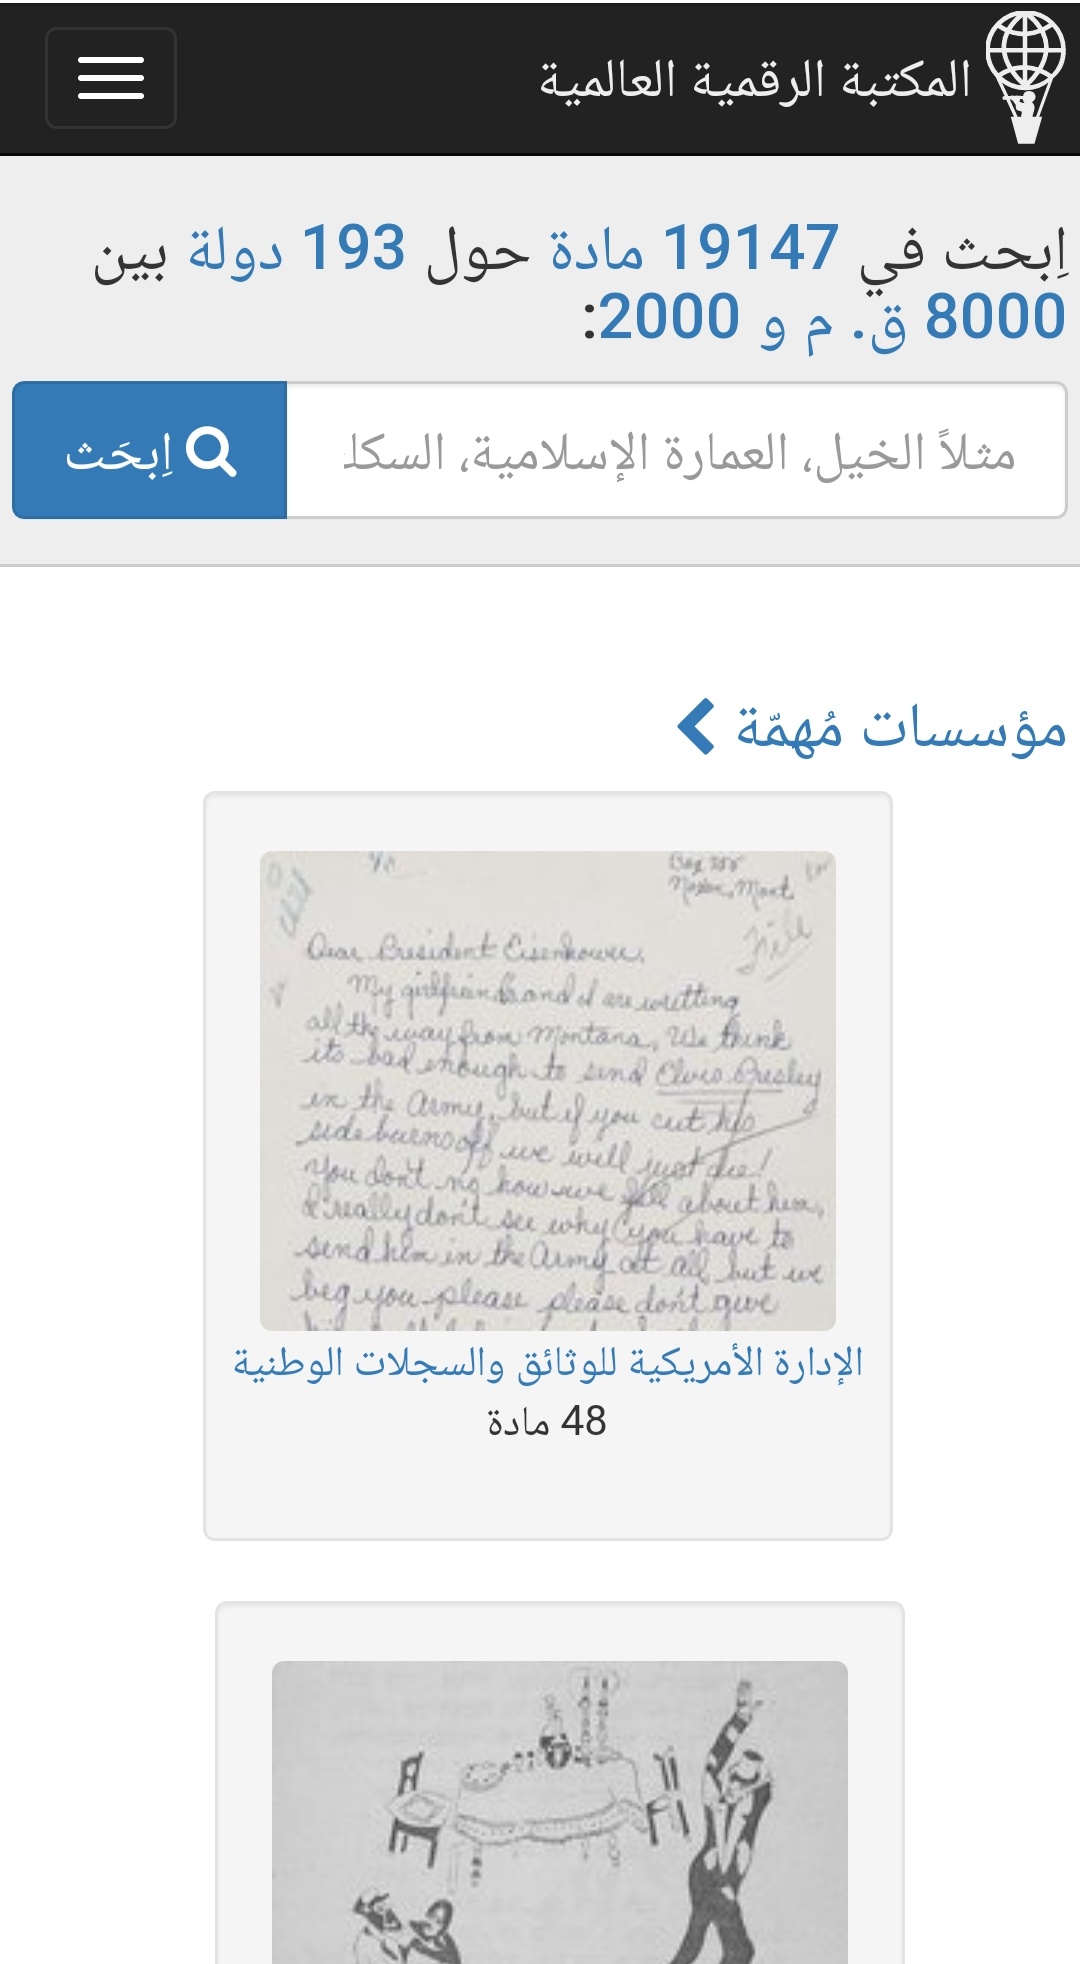 المكتبة الرقمية العالمية
اِبحث في 19147 مادة حول 193 دولة بين
8000 ق. م و 2000:
مثلاً الخيل، العمارة الإسلامية، السكك
اِبحَث
مؤسسات مُهمّة
Box 755
Noxon, Mont
Fill
Dear President Eisenhower,
My girlfriend's and I are writting
all the way from Montana, We think
its bad enough to send Elvis Presley
in the Army, but if you cut his
side burns off we will just die!
You don't no how we fell about him,
I really don't see why you have to
send him in the Army at all, but we
beg you please please don't give
الإدارة الأمريكية للوثائق والسجلات الوطنية
48 مادة